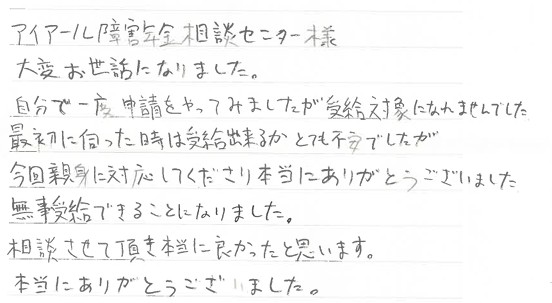 アイアール障害年金相談センター様
大変お世話になりました。
自分で一度申請をやってみましたが受給対象になれませんでした
最初に伺った時は受給出来るかとても不安でしたが
今回親身に対応してくださり本当にありがとうございました
無事受給できることになりました。
相談させて頂き本当に良かったと思います。
本当にありがとうございました。